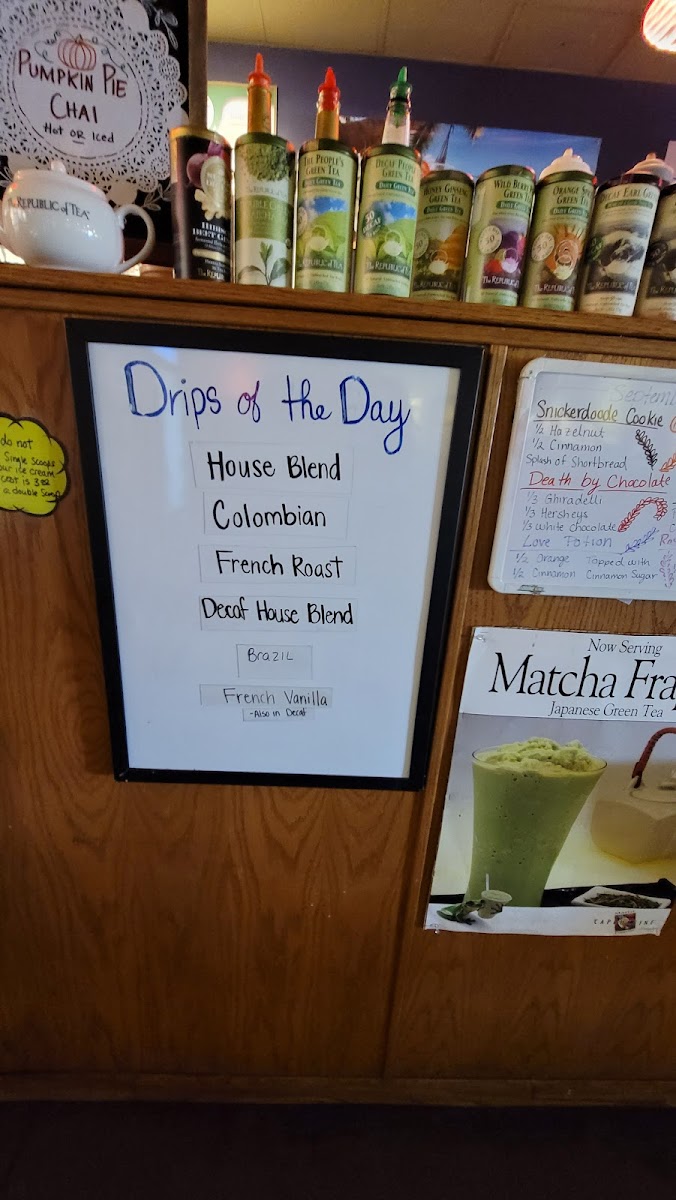 PUMPKIN PIE
CHAI
HOT OR Iced
REPUBLIC of TEA
THE PEOPLE'S
GREEN TEA
DAILY GREEN TEA
THE REPUBLIC of TEA
DECAF PEOPLE'S
GREEN TEA
THE REPUBLIC of TEA
HONEY GINSENG
GREEN TEA
WILD BERRY
GREEN TEA
DAILY GREEN TEA
THE REPUBLIC of TEA
ORANGE SPICE
GREEN TEA
THE REPUBLIC of TEA
EARL GREY
Drips of the Day
House Blend
Colombian
French Roast
Decaf House Blend
Brazil
French Vanilla
-Also in Decaf
do not
Single Scoops
our ice cream
a double
Snickerdoodle Cookie
1/2 Hazelnut
1/2 Cinnamon
Splash of Shortbread
Death by Chocolate
1/3 Ghiradelli
1/3 Hersheys
1/3 white chocolate
Love Potion
1/2 Orange Topped with
1/2 Cinnamon Cinnamon Sugar
Now Serving
Matcha
Japanese Green Tea